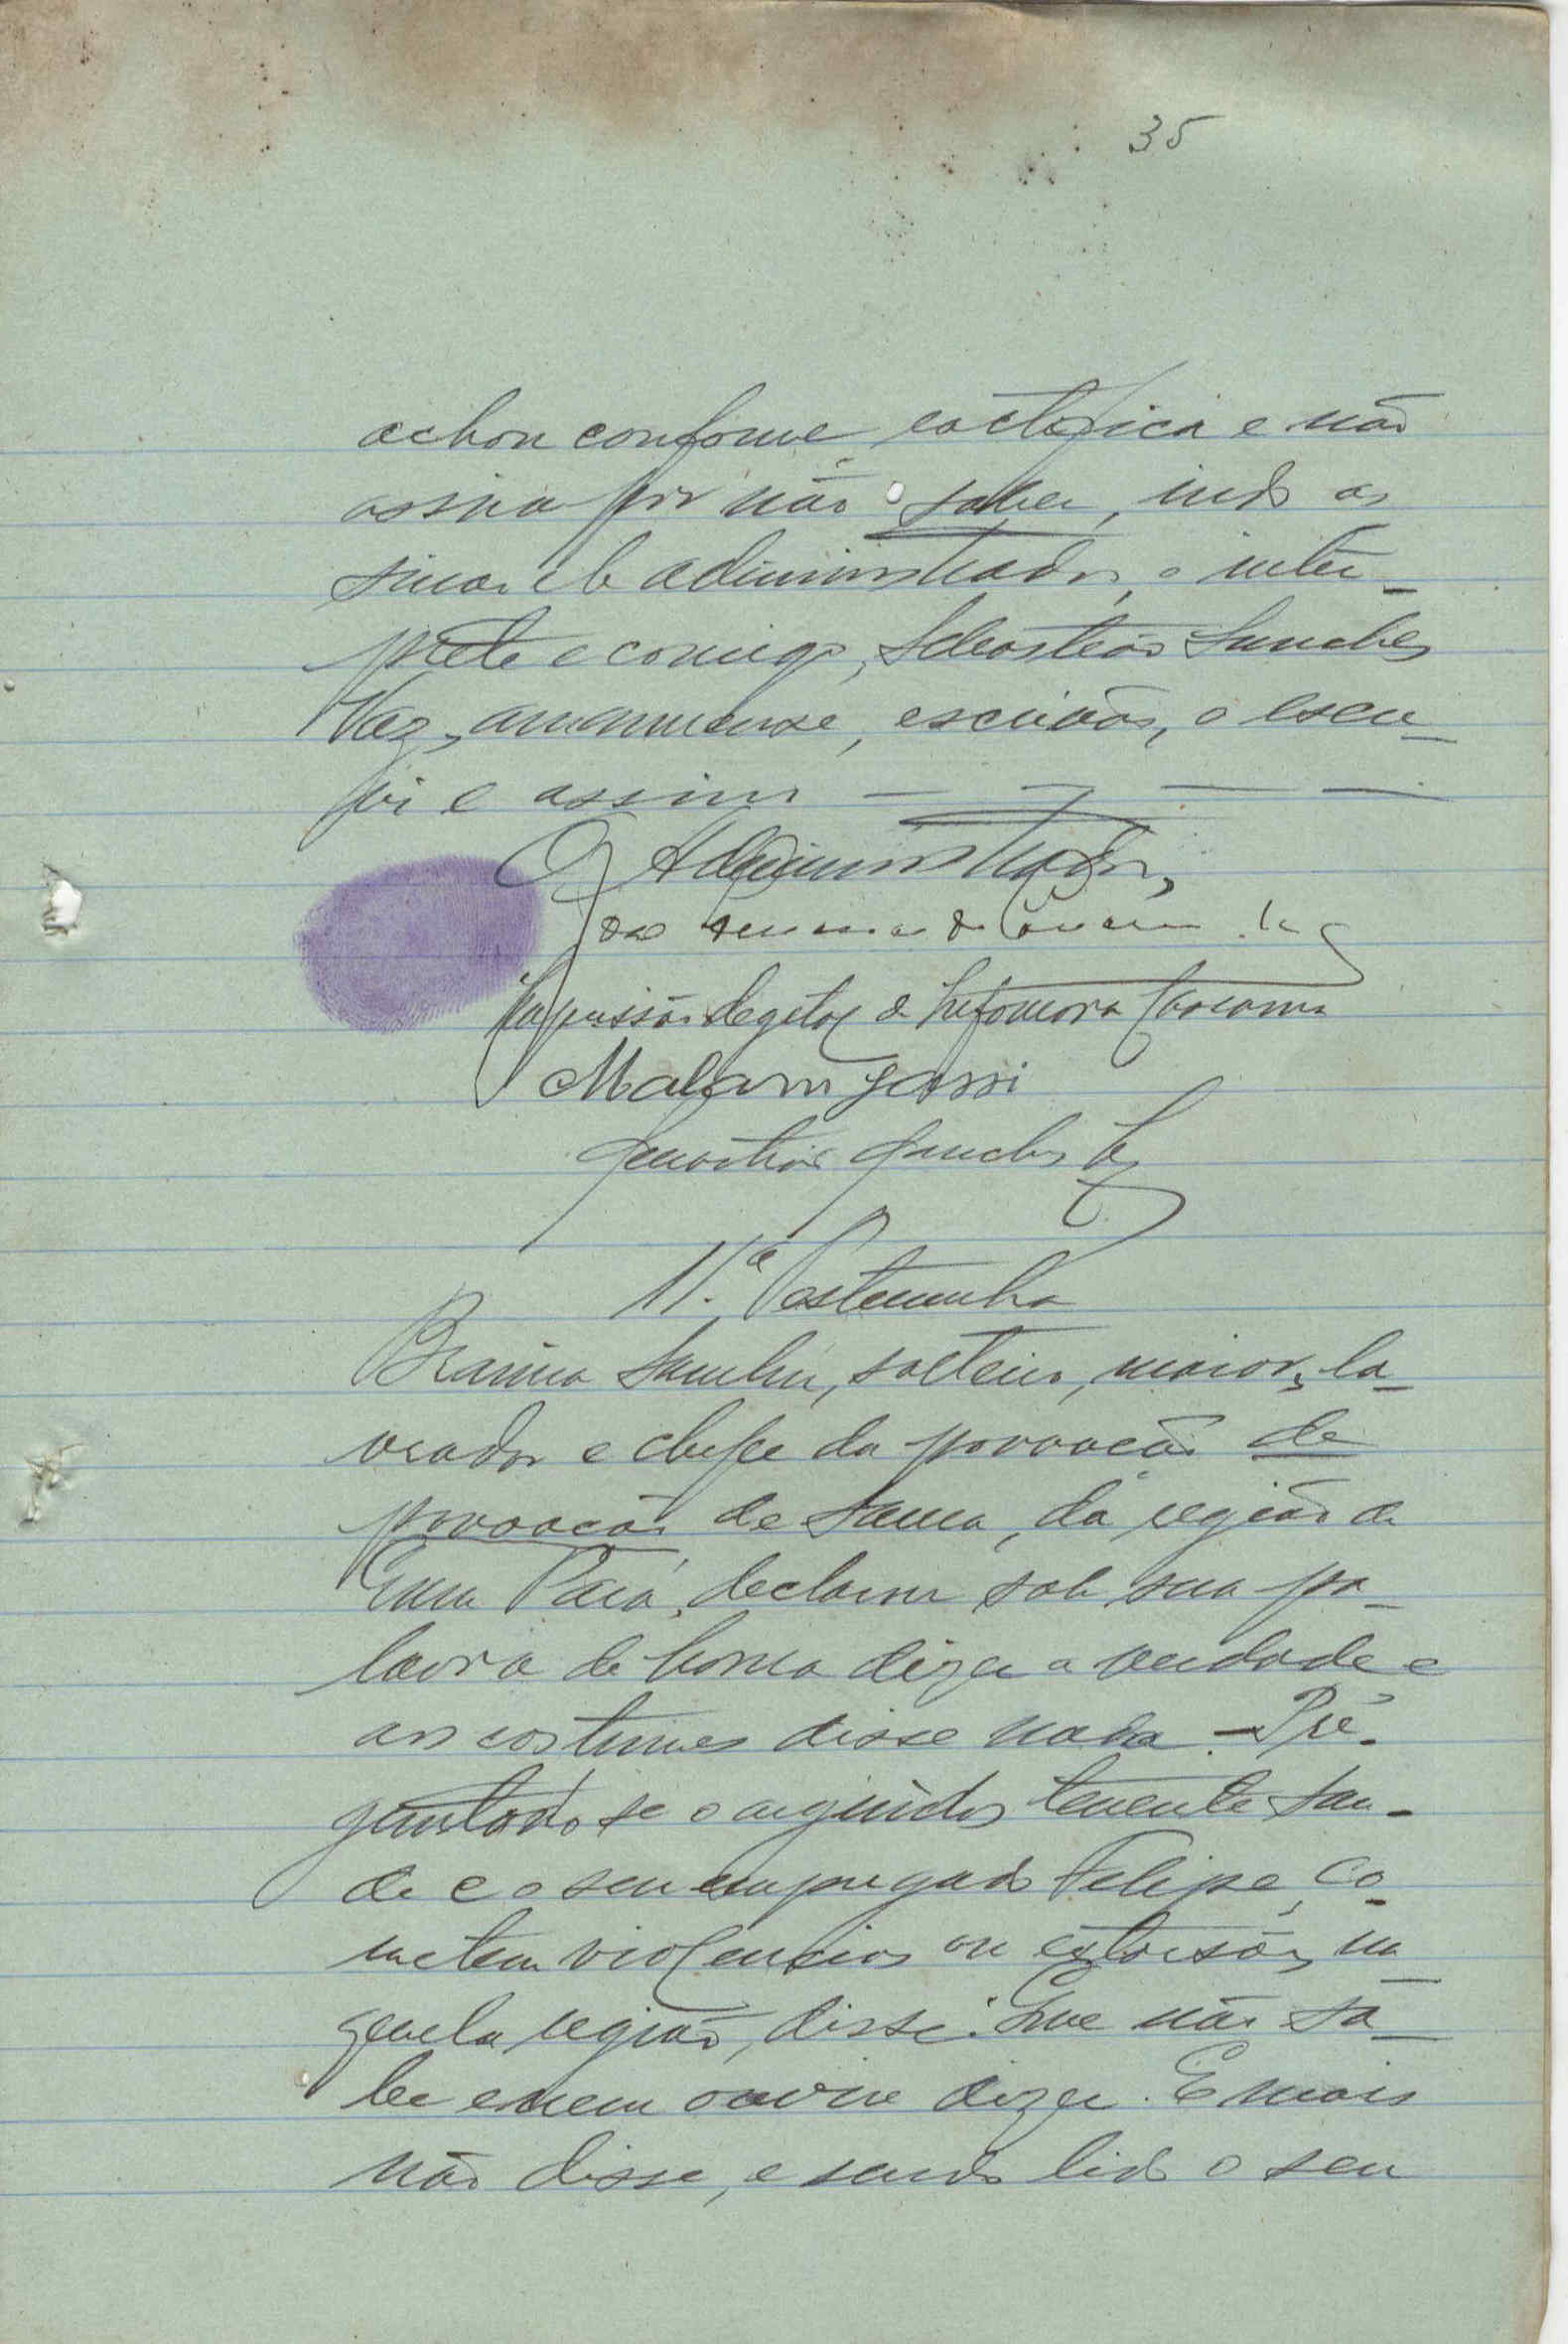 35
achou conforme, ractifica e não
assina por não saber, indo as
sinar ele administrador, o inter-
prete e comigo, Sebastião Sanches
Vaz, amanuense, escrivão, o escre-
vi e assino — — — —
O Administrador,
Impressão degital de
Malam Jassi
Sebastião Sanches Vaz
11.ª Testemunha
solteiro, maior, la-
vrador e chefe da povoação de
povoação de da região de
declarou sob sua pa-
lavra de honra dizer a verdade e
aos costumes disse nada. — Pre-
guntado se o arguidos tenente San-
de e o seu empregado Felipe, co-
metem violencias ou extorsão, na
quela região, disse: Que não sa-
be e nem ouviu dizer. E mais
não disse, e sendo lido o seu